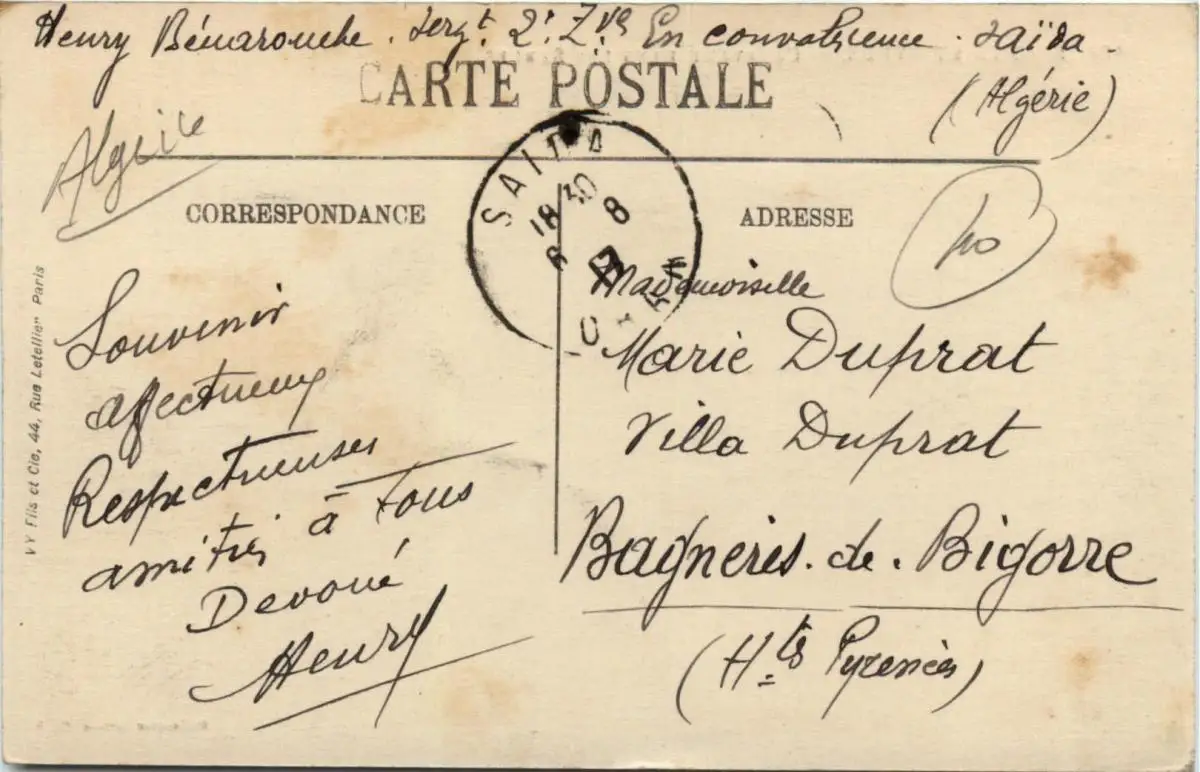 Henry Bénarouche. Sergt. 2e. Zve En convalescence. Saïda.
(Algérie)
CARTE POSTALE
Algérie
SAIDA
18 30
6 8
17
ORAN
CORRESPONDANCE
ADRESSE
Souvenir
affectueux
Respectueuses
amitiés à tous
Devoué
Henry
Mademoiselle
Marie Duprat
Villa Duprat
Bagnères. de. Bigorre
(Htes Pyrenées)
VY Fils et Cie, 44, Rue Letellier Paris